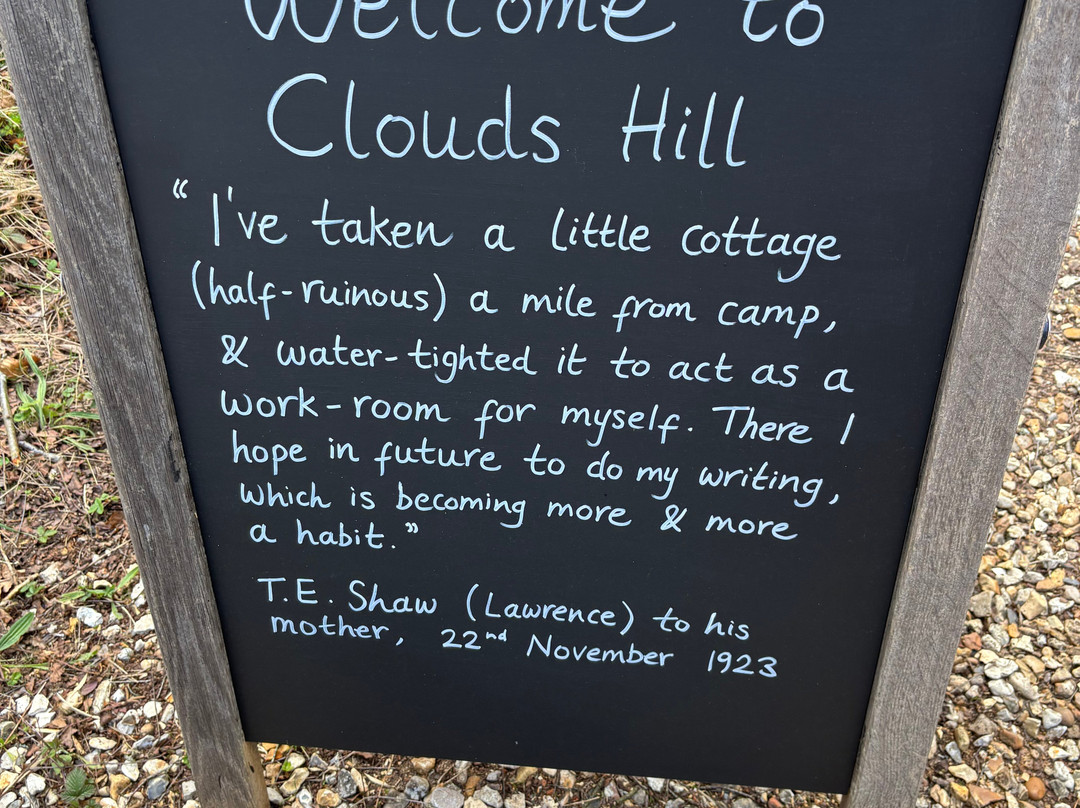 Welcome to
Clouds Hill
“I've taken a little cottage
(half-ruinous) a mile from camp,
& water-tighted it to act as a
work-room for myself. There I
hope in future to do my writing,
which is becoming more & more
a habit.”
T.E. Shaw (Lawrence) to his
mother, 22nd November 1923